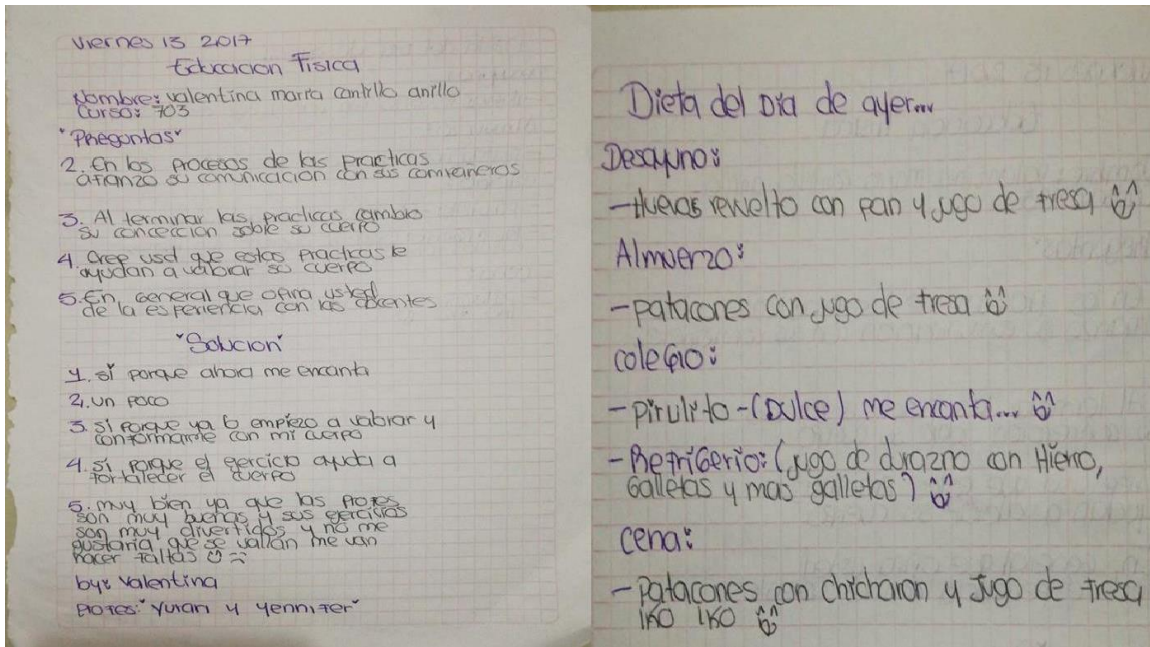 Viernes 13 2017
Educacion Fisica
Nombre: valentina marra cantillo anillo
Curso: 703
"Preguntas"
2. En los procesos de las practicas
afianzo su comunicacion con sus compañeros
3. Al terminar las practicas cambio
su concepcion sobre su cuerpo
4. Cree usd que estas practicas le
ayudan a valorar su cuerpo
5. En general que opina usted
de la esperiencia con las docentes
"Solucion"
1. sí porque ahora me encanta
2. un poco
3. sí porque ya lo empiezo a valorar y
conformarme con mi cuerpo
4. sí porque el ejercicio ayuda a
fortalecer el cuerpo
5. muy bien ya que las profes
son muy buenas y sus ejercisios
son muy divertidos y no me
gustaria que se vallan me van
hacer faltas
by: valentina
profes: "Yurani y Yennifer"
Dieta del Dia de ayer...
Desayuno:
-Huevos revuelto con pan y jugo de fresa
Almuerzo:
-patacones con jugo de fresa
colegio:
-pirulito-(Dulce) me encanta...
-Refrigerio: (jugo de durazno con Hierro,
Galletas y mas galletas)
cena:
-Patacones con chicharon y Jugo de fresa
iko iko